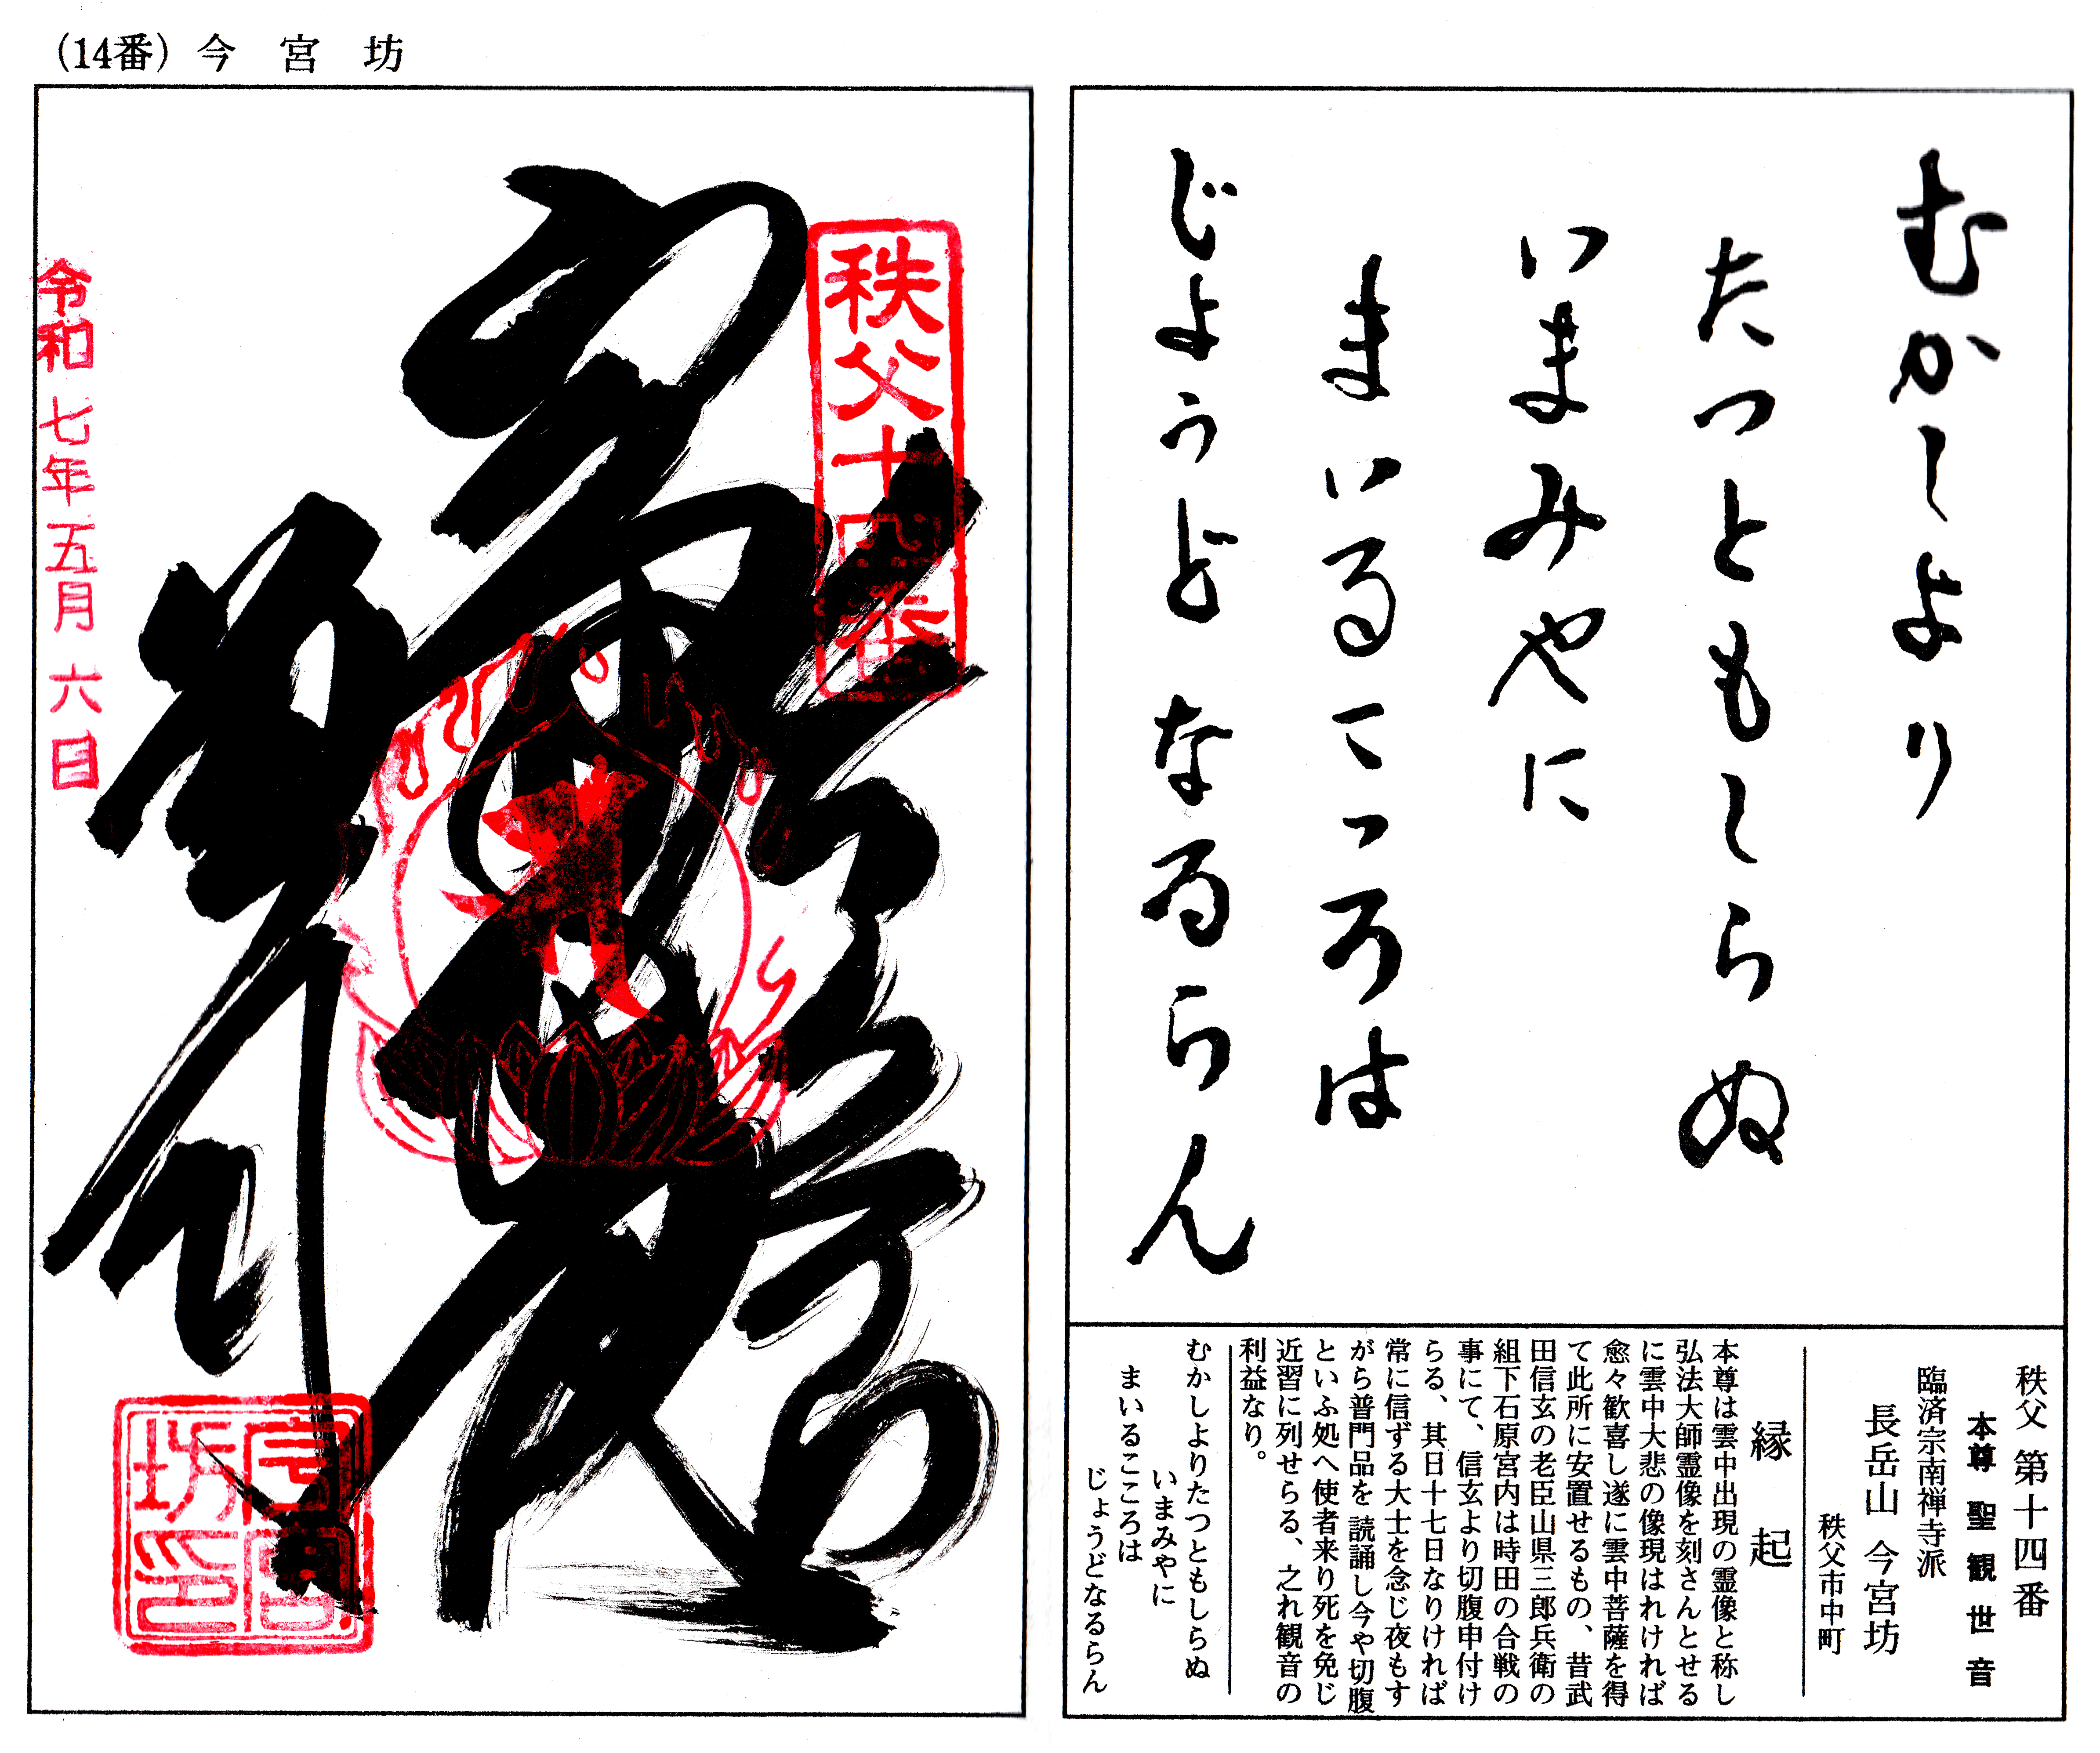 (14番) 今宮坊
むかしより
たつともしらぬ
いまみやに
まいるこころは
じょうどなるらん
秩父 第十四番
本尊 聖観世音
臨済宗南禅寺派
長岳山 今宮坊
秩父市中町
縁起
本尊は雲中出現の霊像と称し
弘法大師霊像を刻さんとせる
に雲中大悲の像現はれければ
愈々歓喜し遂に雲中菩薩を得
て此所に安置せるもの、昔武
田信玄の老臣山県三郎兵衛の
組下石原宮内は時田の合戦の
事にて、信玄より切腹申付け
らる、其日十七日なりければ
常に信ずる大士を念じ夜もす
がら普門品を読誦し今や切腹
といふ処へ使者来り死を免じ
近習に列せらる、之れ観音の
利益なり。
むかしよりたつともしらぬ
いまみやに
まいるこころは
じょうどなるらん
秩父十四番
令和七年五月六日